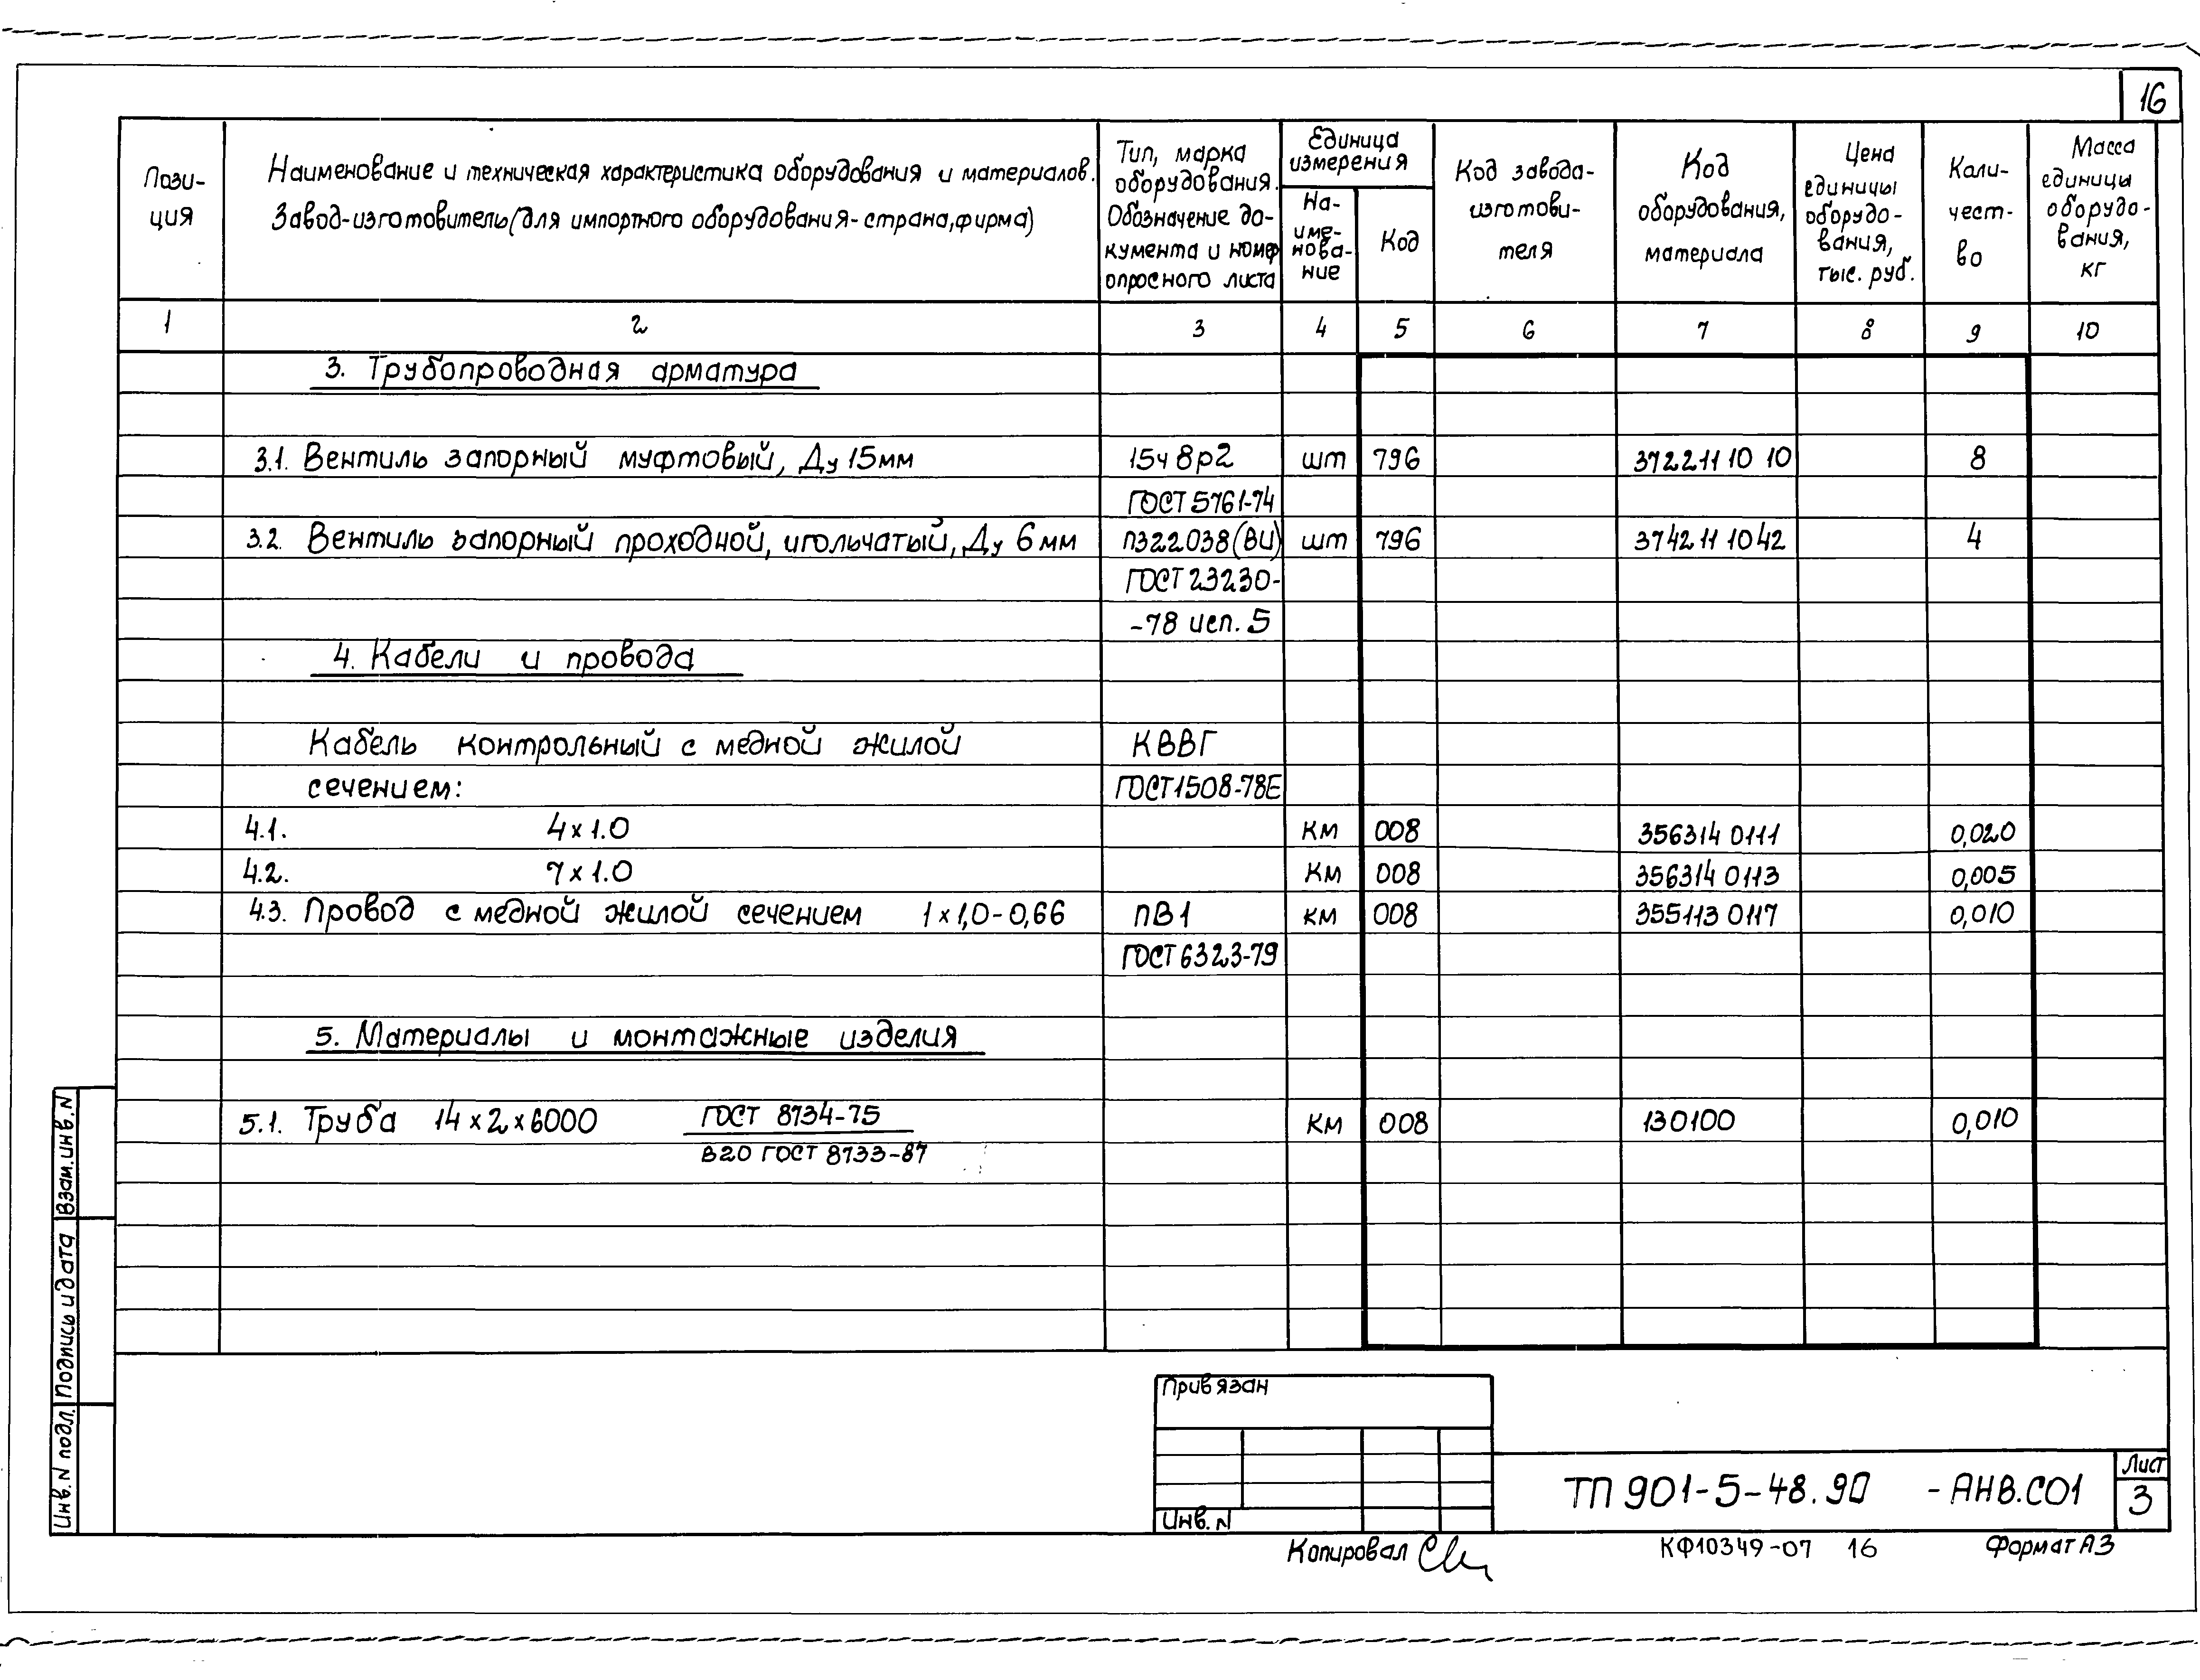 16
Пози-
ция
Наименование и техническая характеристика оборудования и материалов.
Завод-изготовитель (для импортного оборудования - страна, фирма)
Тип, марка
оборудования.
Обозначение до-
кумента и номер
опросного листа
Единица
измерения
На-
име-
нова-
ние
Код
Код завода-
изготови-
теля
Код
оборудования,
материала
Цена
единицы
оборудо-
вания,
тыс. руб.
Коли-
чест-
во
Масса
единицы
оборудо-
вания,
кг
1 2 3 4 5 6 7 8 9 10
3. Трубопроводная арматура
3.1. Вентиль запорный муфтовый, Ду 15мм 15ч 8р2 шт 796 372211 10 10 8
ГОСТ 5761-74
3.2. Вентиль запорный проходной, игольчатый, Ду 6 мм П322038(ВИ) шт 796 374211 1042 4
ГОСТ 23230-
-78 исп. 5
4. Кабели и провода
Кабель контрольный с медной жилой КВВГ
сечением: ГОСТ1508-78Е
4.1. 4×1.0 км 008 356314 0111 0,020
4.2. 7×1.0 км 008 356314 0113 0,005
4.3. Провод с медной жилой сечением 1×1,0-0,66 ПВ1 км 008 355113 0117 0,010
ГОСТ 6323-79
5. Материалы и монтажные изделия
5.1. Труба 14×2×6000 ГОСТ 8734-75 км 008 130100 0,010
В20 ГОСТ 8733-87
Взам. инв. N
Подпись и дата
Инв. N подл.
Привязан
Инв. N
ТП 901-5-48.90 -АНВ.СО1
Лист
3
Копировал
КФ10349-07 16
Формат А3